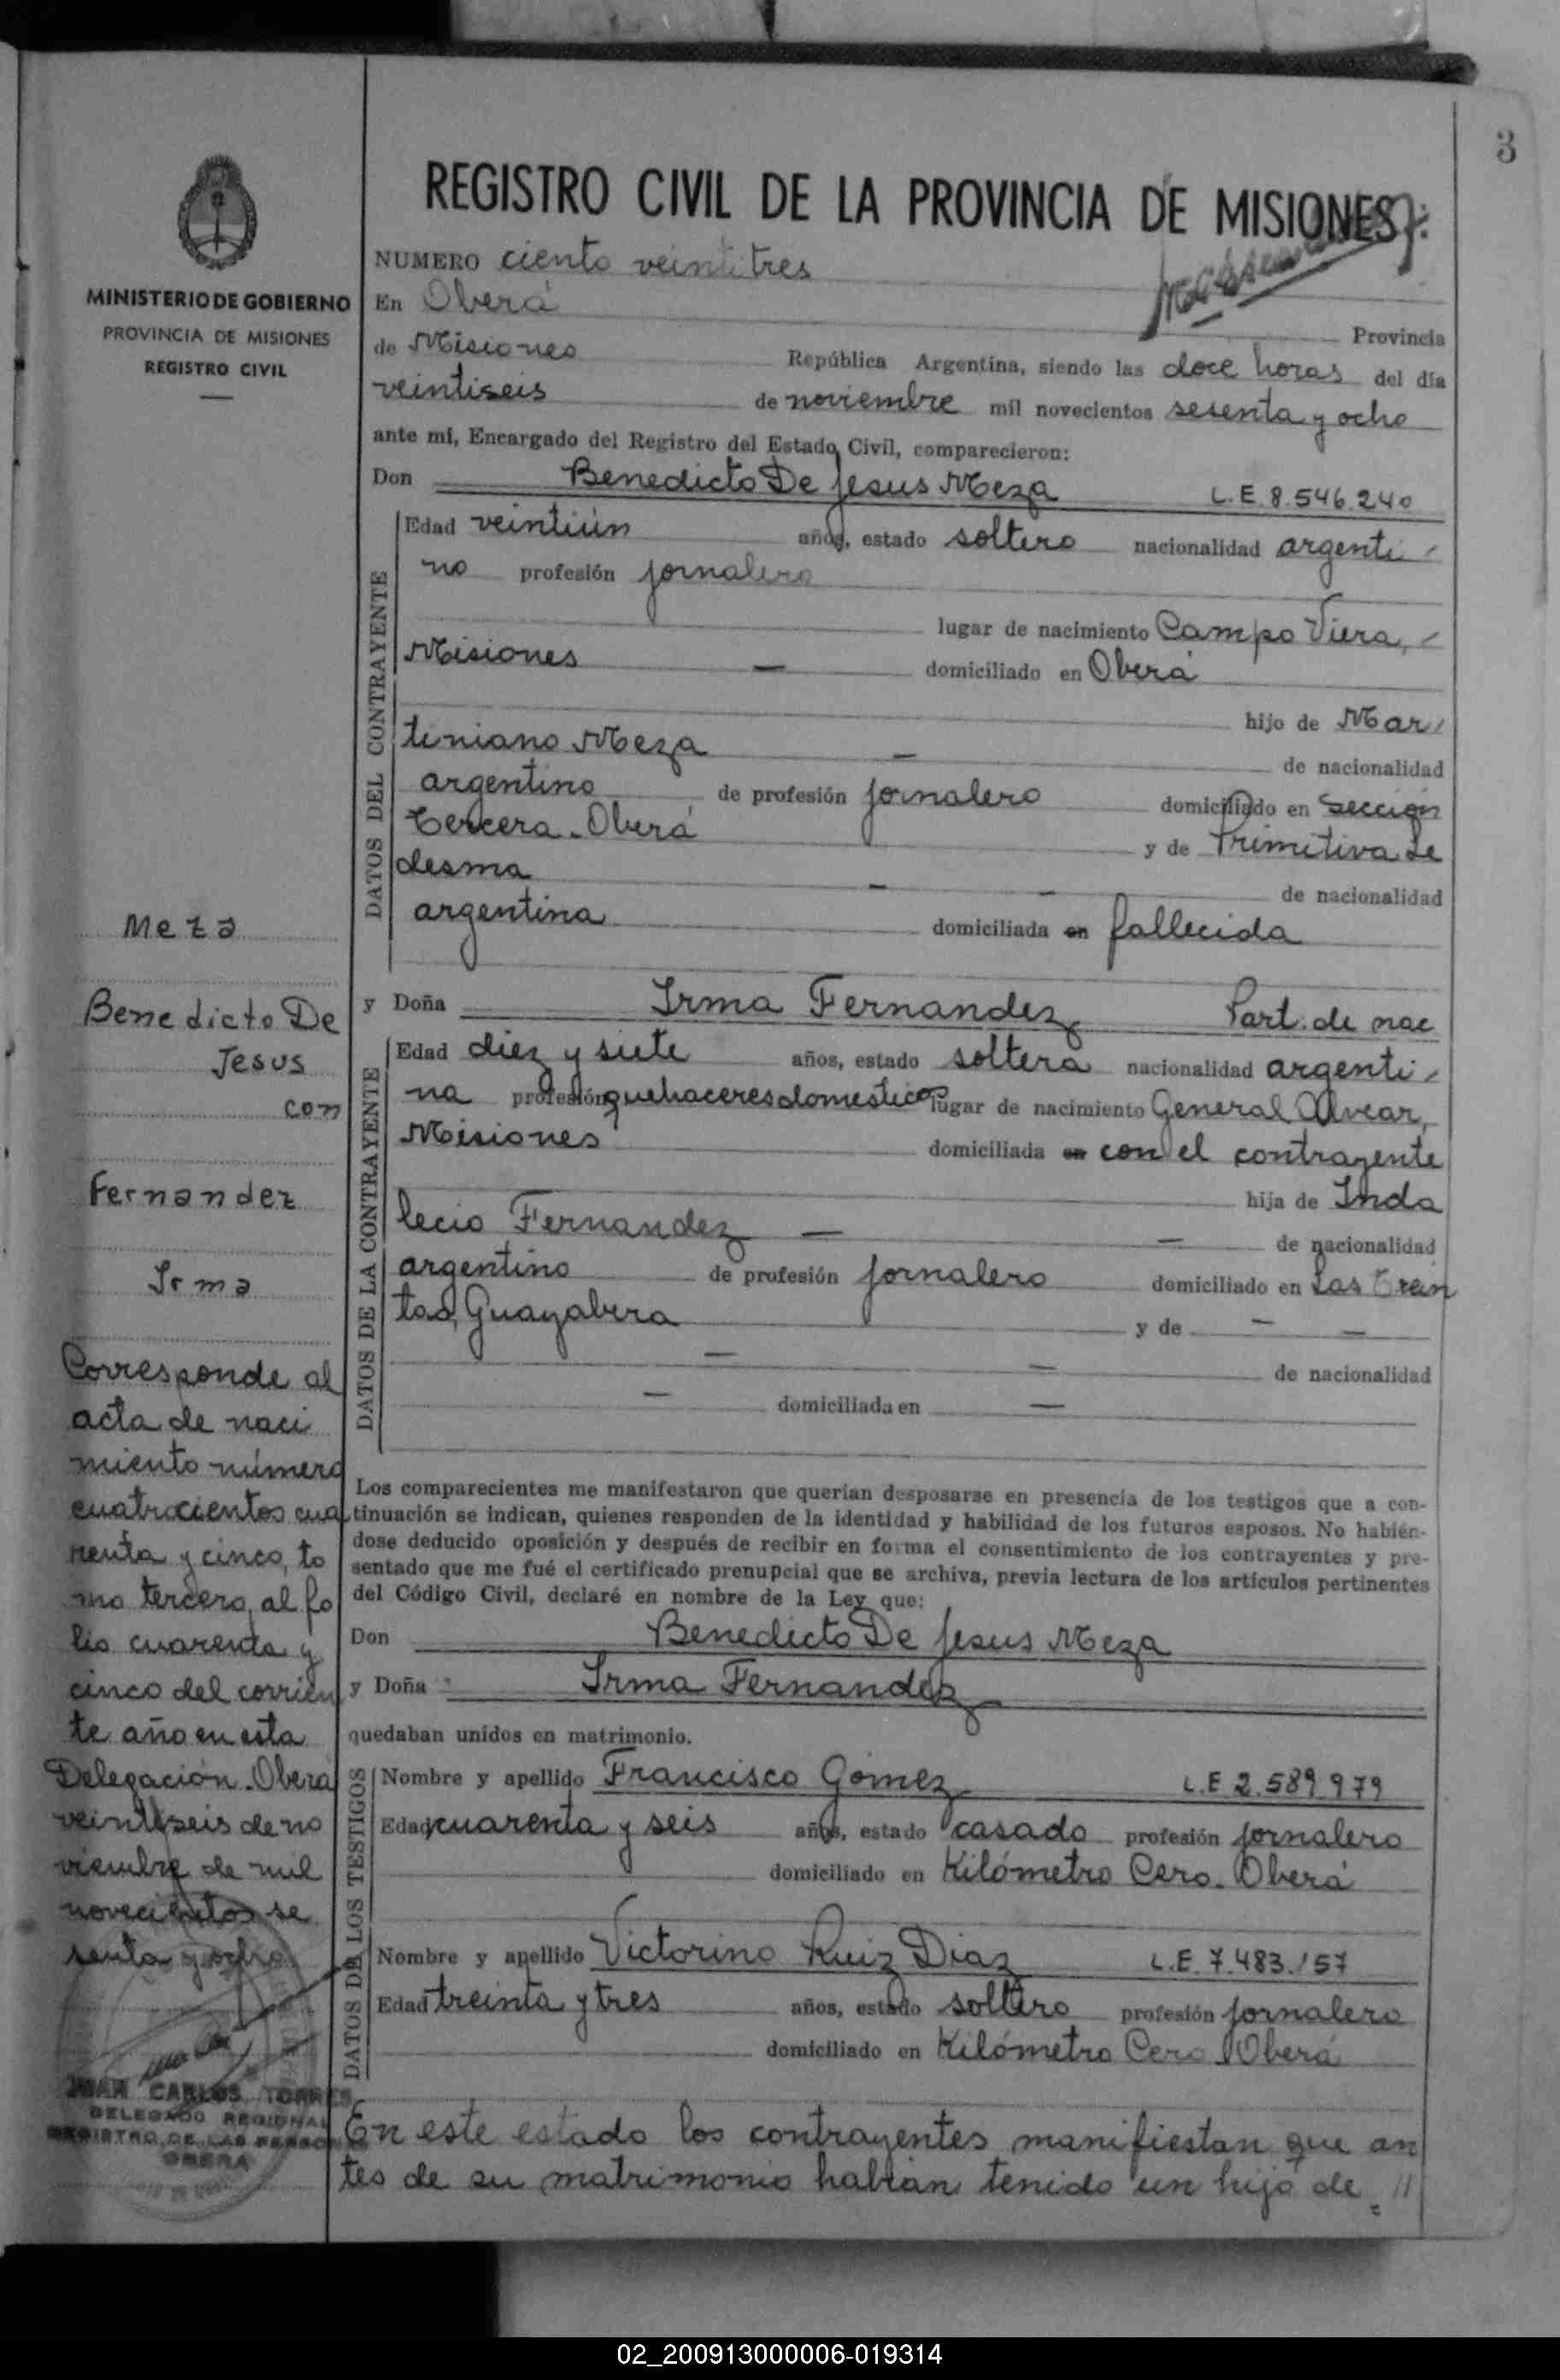 3
REGISTRO CIVIL DE LA PROVINCIA DE MISIONES
NUMERO ciento veintitres
En Oberá
Provincia
de Misiones República Argentina, siendo las doce horas del día
veintiseis de noviembre mil novecientos sesenta y ocho
ante mi, Encargado del Registro del Estado Civil, comparecieron:
Don Benedicto De Jesus Meza L.E. 8.546.240
DATOS DEL CONTRAYENTE
Edad veintiún años, estado soltero nacionalidad argenti
no profesión jornalero
lugar de nacimiento Campo Viera,
Misiones — domiciliado en Oberá
hijo de Mar
tiniano Meza —
de nacionalidad
argentino de profesión jornalero domiciliado en Sección
tercera - Oberá
y de Primitiva Le
desma — —
de nacionalidad
argentina domiciliada en fallecida
y Doña Irma Fernandez Part. de nac
DATOS DE LA CONTRAYENTE
Edad diez y siete años, estado soltera nacionalidad argenti
na profesión quehaceres domesticos lugar de nacimiento General Alvear,
Misiones domiciliada en con el contrayente
hija de Inda
lecio Fernandez — —
de nacionalidad
argentino de profesión jornalero domiciliado en Las Trein
tas, Guayabera
y de — —
— —
de nacionalidad
— domiciliada en —
Los comparecientes me manifestaron que querían desposarse en presencia de los testigos que a con-
tinuación se indican, quienes responden de la identidad y habilidad de los futuros esposos. No habién-
dose deducido oposición y después de recibir en forma el consentimiento de los contrayentes y pre-
sentado que me fué el certificado prenupcial que se archiva, previa lectura de los artículos pertinentes
del Código Civil, declaré en nombre de la Ley que:
Don Benedicto De Jesus Meza
y Doña Irma Fernandez
quedaban unidos en matrimonio.
DATOS DE LOS TESTIGOS
Nombre y apellido Francisco Gómez L.E. 2.589.979
Edad cuarenta y seis años, estado casado profesión jornalero
domiciliado en Kilómetro Cero - Oberá
Nombre y apellido Victorino Ruiz Diaz L.E. 7.483.157
Edad treinta y tres años, estado soltero profesión jornalero
domiciliado en Kilómetro Cero Oberá
En este estado los contrayentes manifiestan que an
tes de su matrimonio habían tenido un hijo de //
MINISTERIO DE GOBIERNO
PROVINCIA DE MISIONES
REGISTRO CIVIL
Meza
Benedicto De
Jesus
con
Fernandez
Irma
Corresponde al
acta de naci
miento número
cuatrocientos cua
renta y cinco, to
mo tercero, al fo
lio cuarenta y
cinco del corrien
te año en esta
Delegación - Oberá
veintiseis de no
viembre de mil
novecientos se
senta y ocho
JUAN CARLOS TORRES
DELEGADO REGIONAL
REGISTRO DE LAS PERSONAS
OBERA
02_200913000006-019314